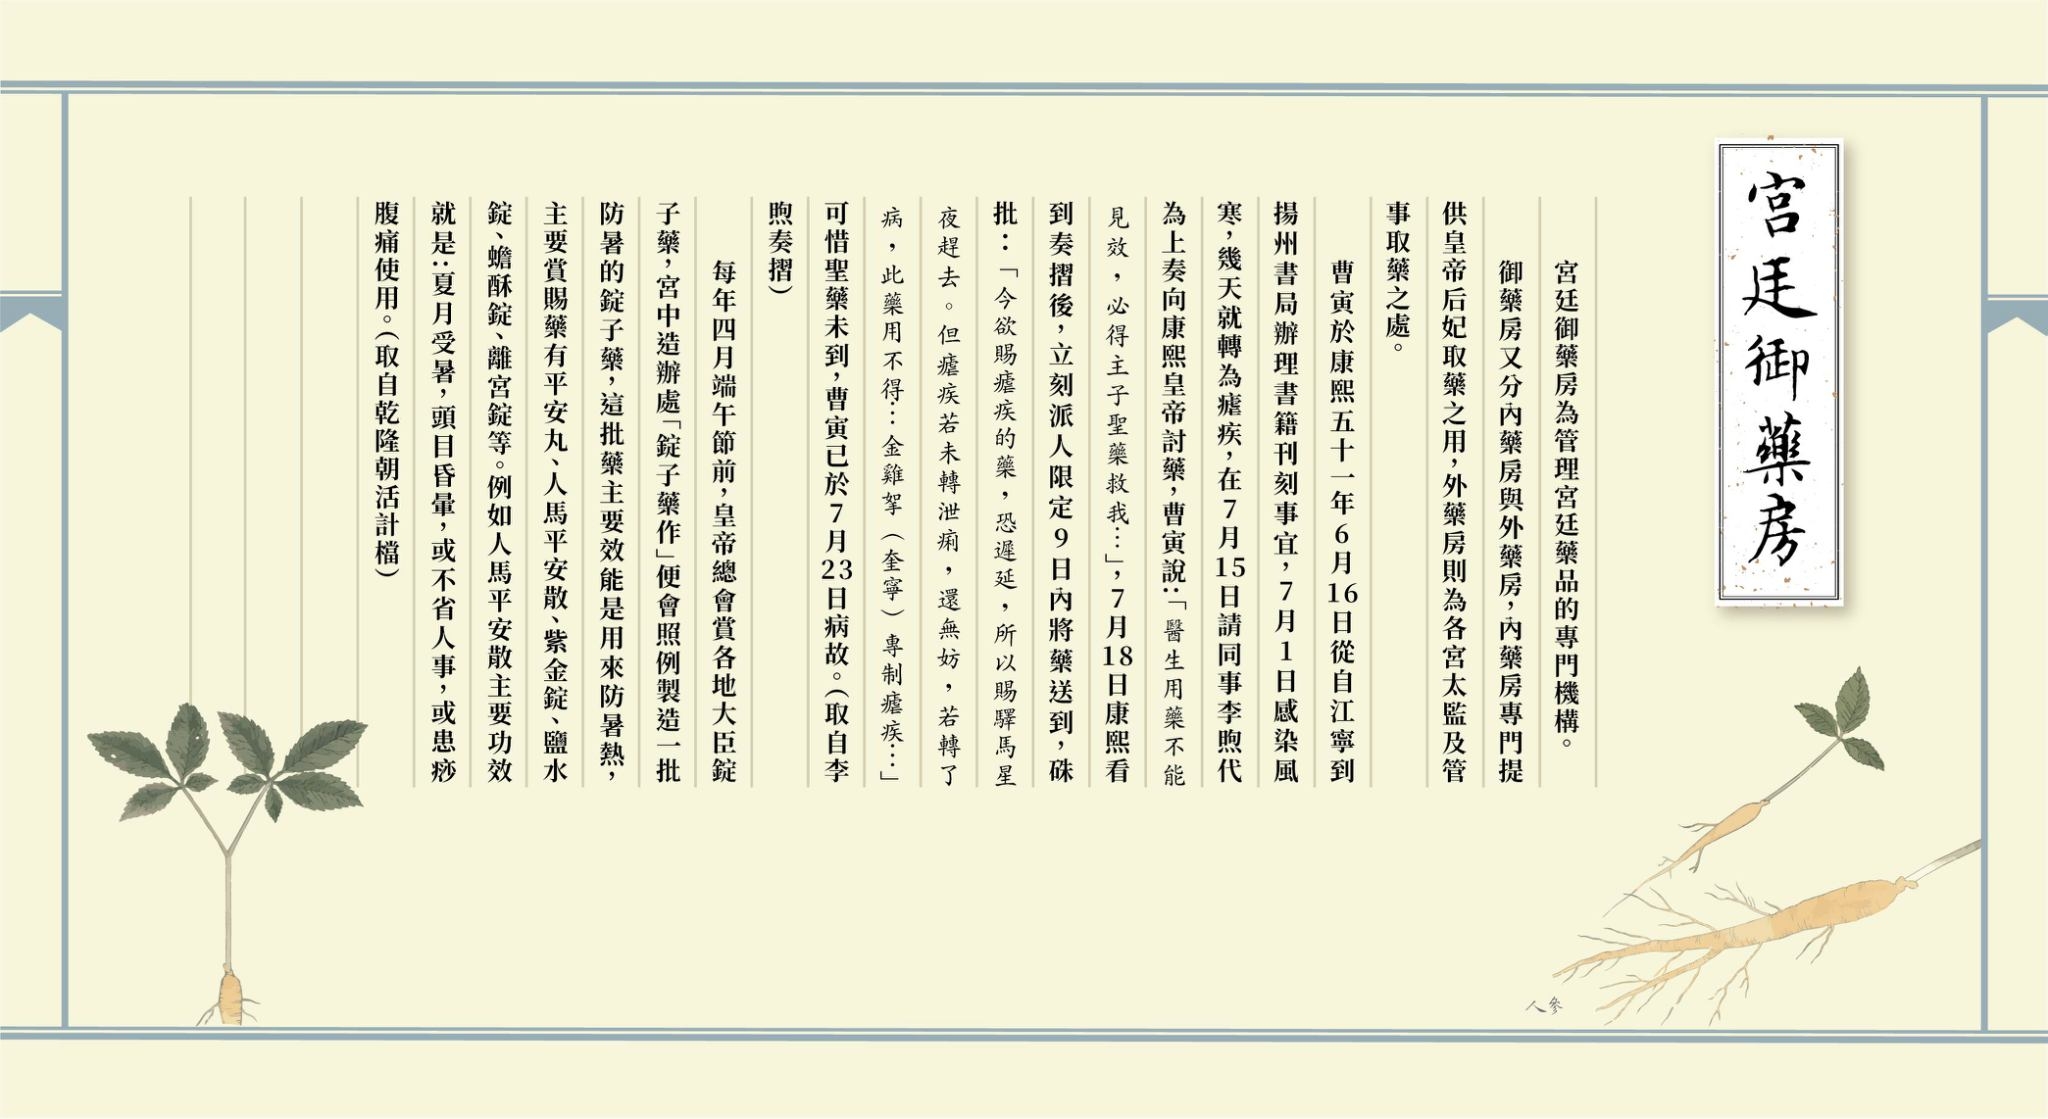 宮廷御藥房
宮廷御藥房為管理宮廷藥品的專門機構。
御藥房又分內藥房與外藥房，內藥房專門提
供皇帝后妃取藥之用，外藥房則為各宮太監及管
事取藥之處。
曹寅於康熙五十一年6月16日從自江寧到
揚州書局辦理書籍刊刻事宜，7月1日感染風
寒，幾天就轉為瘧疾，在7月15日請同事李煦代
為上奏向康熙皇帝討藥，曹寅說：「醫生用藥不能
見效，必得主子聖藥救我…」，7月18日康熙看
到奏摺後，立刻派人限定9日內將藥送到，硃
批：「今欲賜瘧疾的藥，恐遲延，所以賜驛馬星
夜趕去。但瘧疾若未轉泄痢，還無妨，若轉了
病，此藥用不得…金雞挐（奎寧）專制瘧疾…」
可惜聖藥未到，曹寅已於7月23日病故。（取自李
煦奏摺）
每年四月端午節前，皇帝總會賞各地大臣錠
子藥，宮中造辦處「錠子藥作」便會照例製造一批
防暑的錠子藥，這批藥主要效能是用來防暑熱，
主要賞賜藥有平安丸、人馬平安散、紫金錠、鹽水
錠、蟾酥錠、離宮錠等。例如人馬平安散主要功效
就是：夏月受暑，頭目昏暈，或不省人事，或患痧
腹痛使用。（取自乾隆朝活計檔）
人參